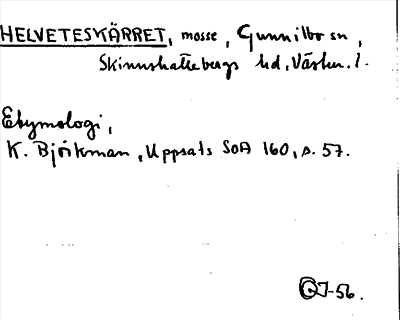 HELVETESKÄRRET, mosse, Gunnilbo sn,
Skinnskattebergs hd, Västm. l.
Etymologi,
K. Björkman, Uppsats SOA 160, s. 57.
GJ-56.